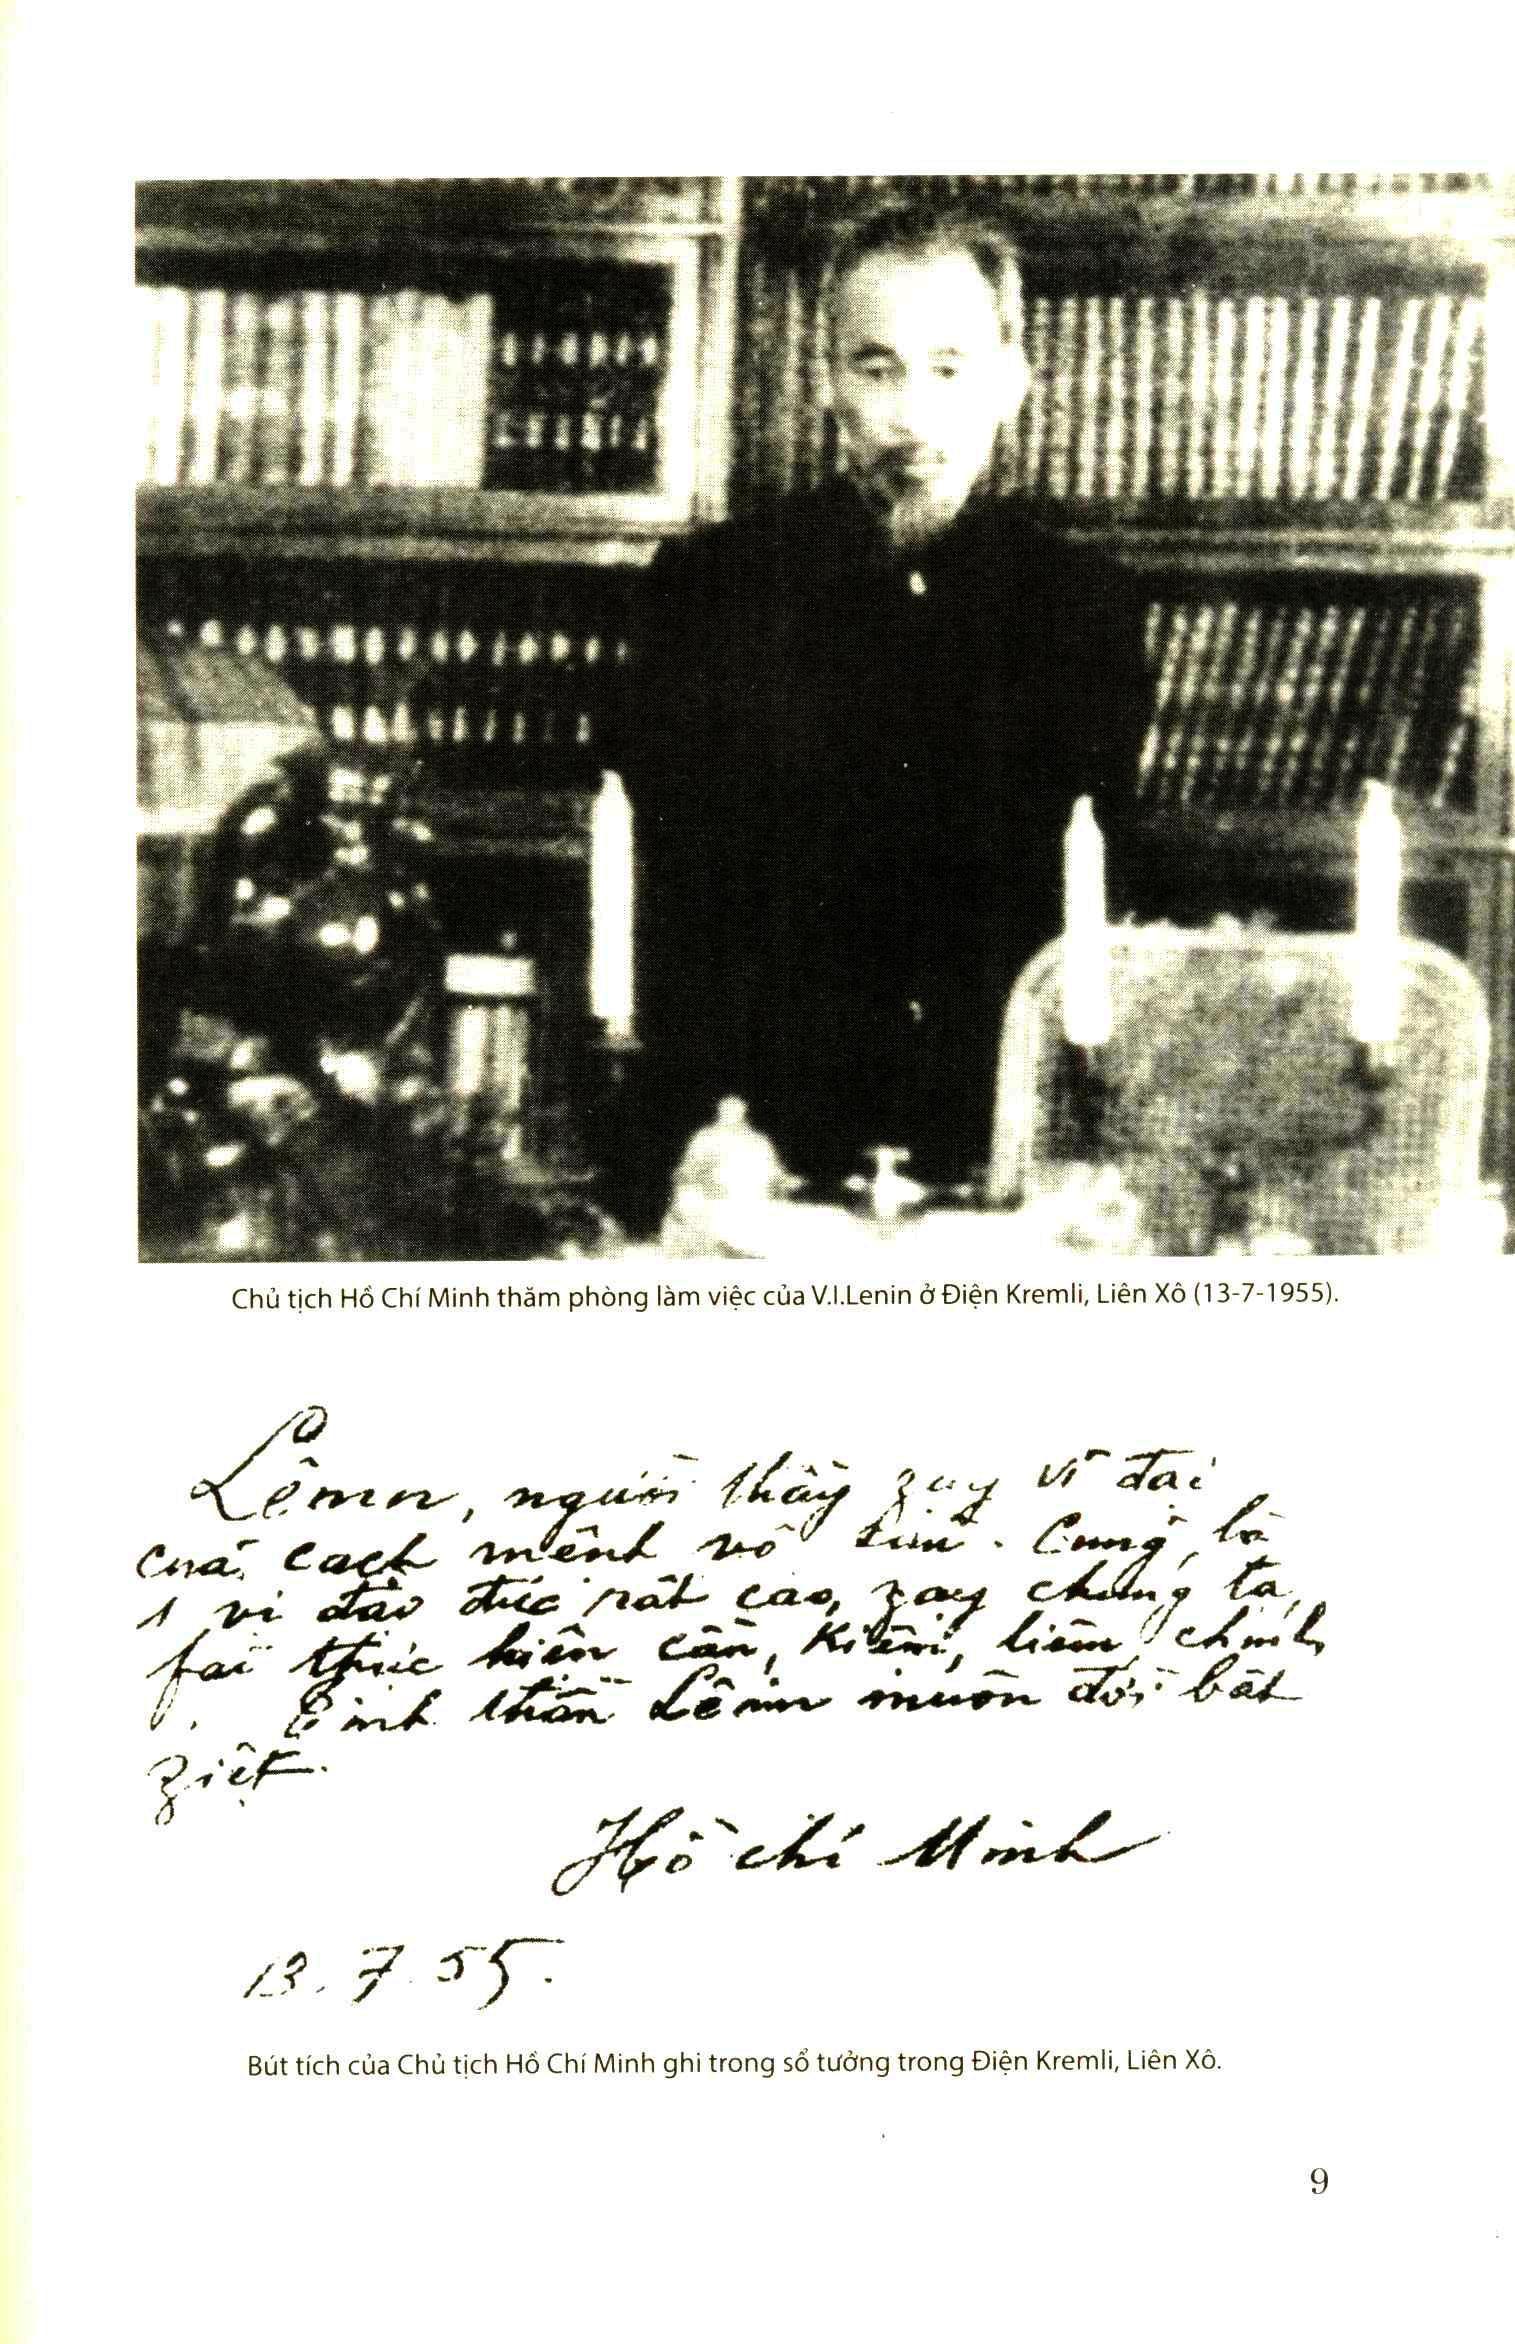 Chủ tịch Hồ Chí Minh thăm phòng làm việc của V.I.Lenin ở Điện Kremli, Liên Xô (13-7-1955).
Lênin, người thầy zạy vĩ đại
của cách mệnh vô sản. Cũng là
1 vị đạo đức rất cao, zạy chúng ta
fải thực hiện cần, kiệm, liêm, chính.
Tinh thần Lênin muôn đời bất
ziệt.
Hồ chí Minh
13.7.55.
Bút tích của Chủ tịch Hồ Chí Minh ghi trong sổ tưởng trong Điện Kremli, Liên Xô.
9